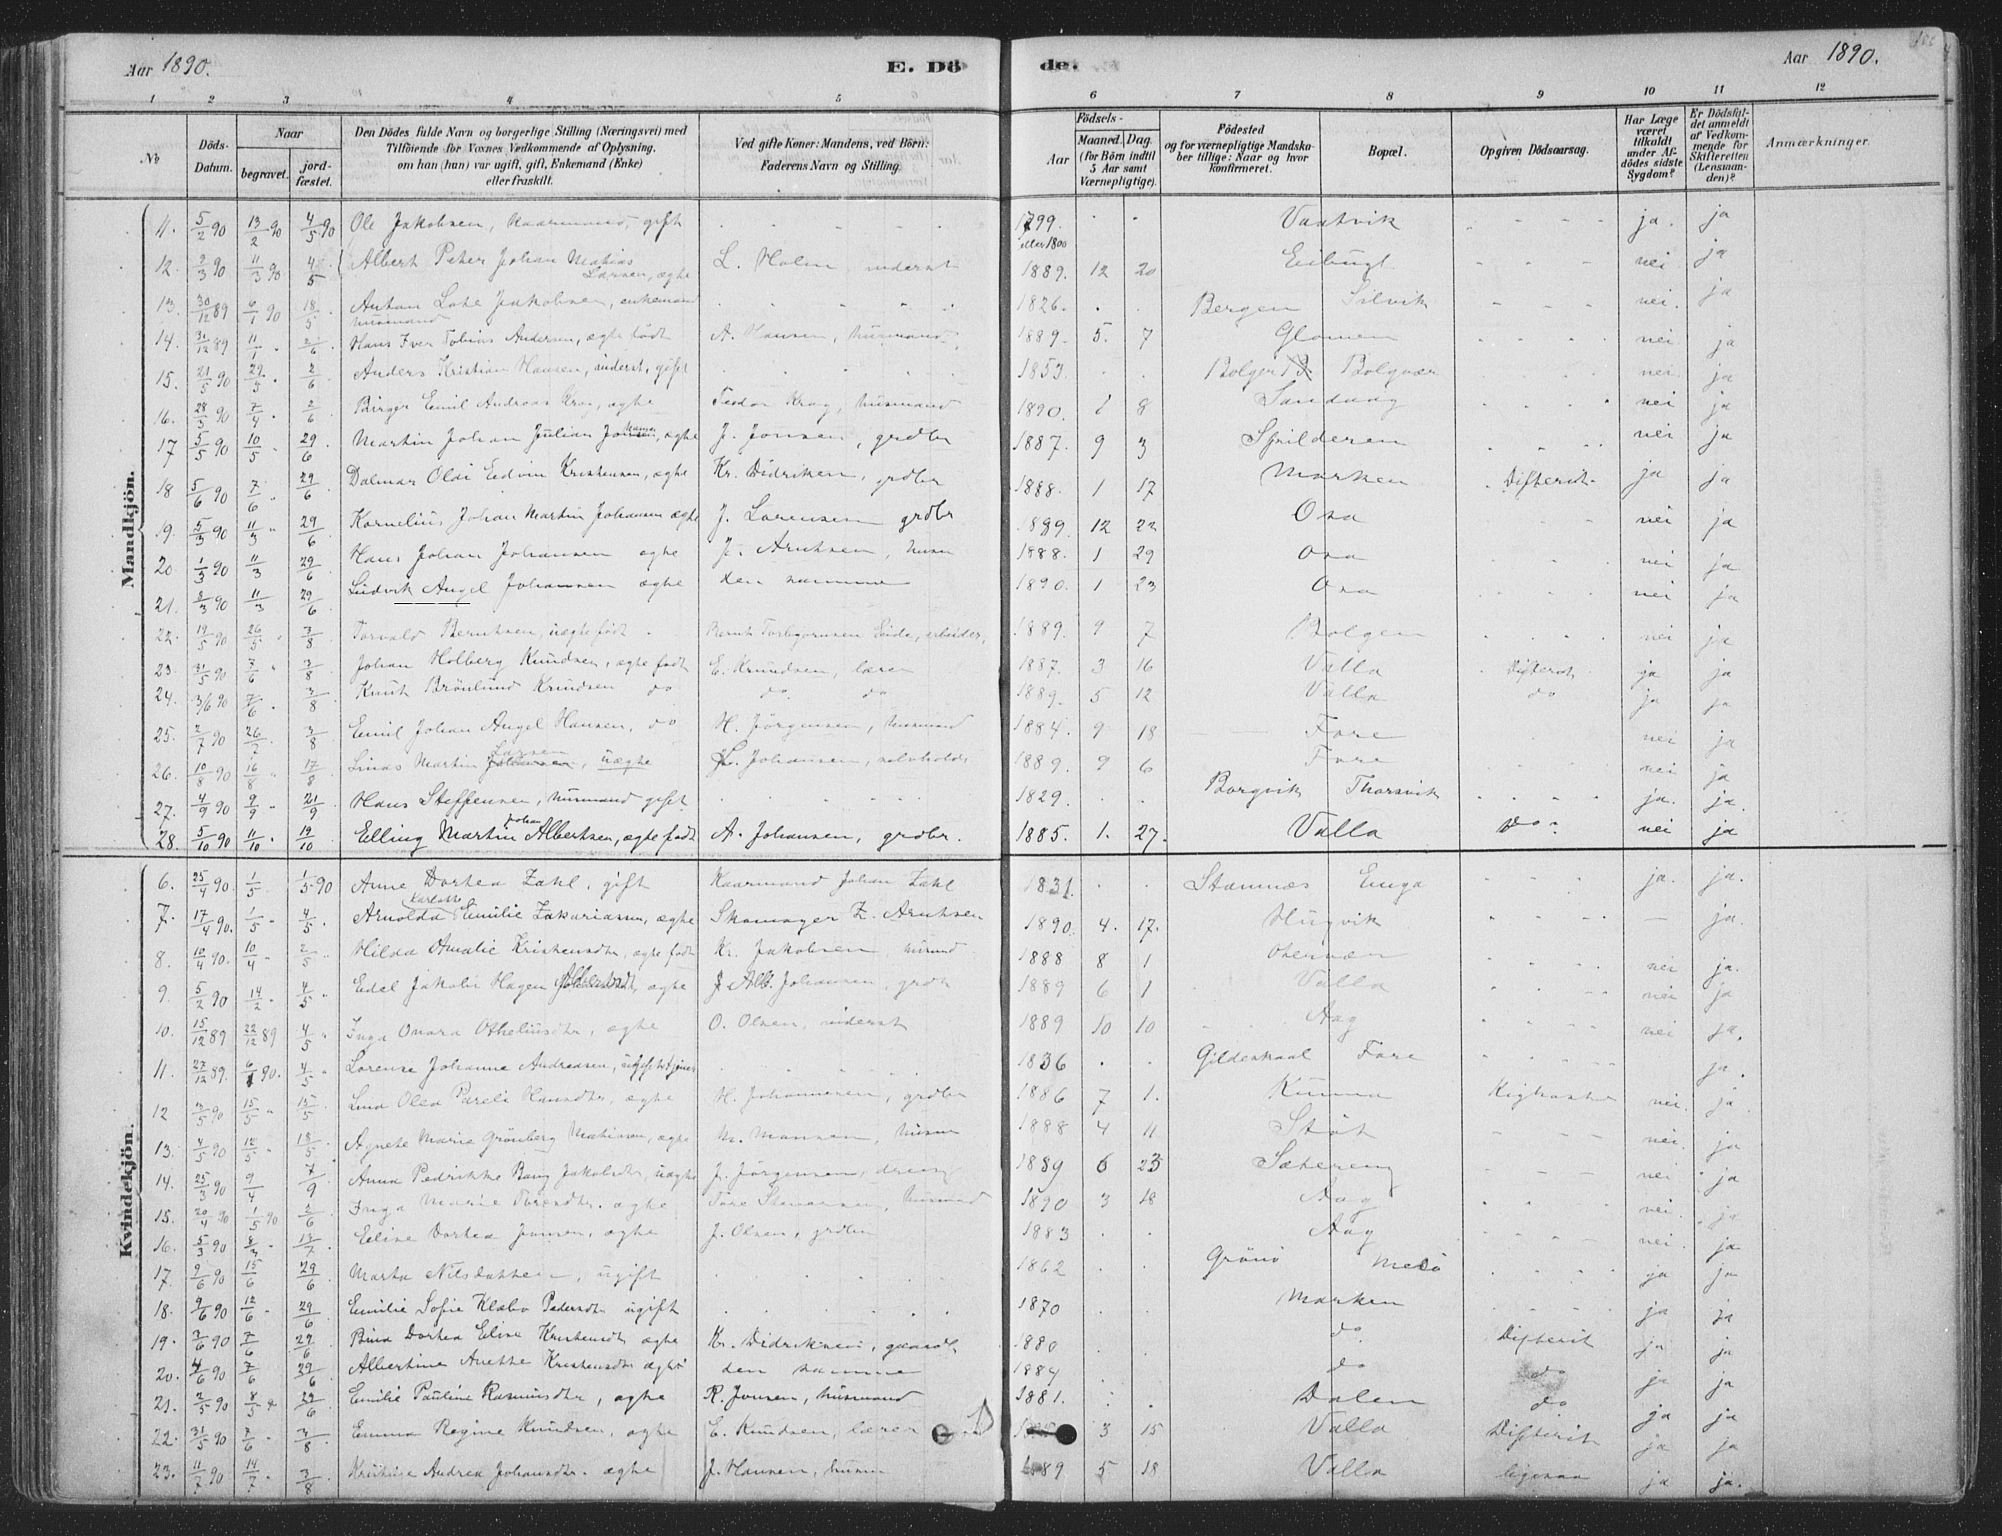 Aar 1890. E. Dö de. Aar 1890.
1 2 3 4 5 6 7 8 9 10 11 12
No
Döds-Datum.
Naar
begravet.
jord-fæstet.
Den Dödes fulde Navn og borgerlige Stilling (Næringsvei) med
Tilföiende for Voxnes Vedkommende af Oplysning,
om han (hun) var ugift, gift, Enkemand (Enke)
eller fraskilt.
Ved gifte Koner: Mandens, ved Börn:
Faderens Navn og Stilling.
Födsels-
Aar
Maaned. Dag.
(for Börn indtil
5 Aar samt
Værnepligtige).
Födested
og for værnepligtige Mandska-
ber tillige: Naar og hvor
konfirmeret.
Bopæl.
Opgiven Dödsaarsag.
Har Læge
været
tilkaldt
under Af-
dödes sidste
Sygdom?
Er Dödsfal-
det anmeldt
af Vedkom-
mende for
Skifteretten
(Lensman-
den)?
Anmærkninger.
Mandkjön.
11. 5/2 90 13/2 90 4/5 90 Ole Jakobsen, Kaarmand, gift 1799. eller 1800 Vaatvik ja. ja
12. 2/3 90 11/3 90 4/5 Albert Peter Johan Matias Larsen, ægte L. Holm inderst 1889. 12 20 Eibugt nei ja
13. 30/12 89 6/1 90 18/5 Anton Lote Jakobsen, enkemand husmand 1826. Bergen Silvik nei. ja
14. 31/12 89 11/1 2/6 Hans Iver Tobias Andersen, ægte født A. Hansen, husmand 1889. 5. 7 Glomen nei ja
15. 21/5 90 29/5 2/6 Anders Kristian Hansen, inderst, gift 1853. Bolger Bolgvær nei. ja
16. 28/3 90 7/4 2/6 Birger Emil Andreas Krog, ægte Teodor Krog, husmand 1890. 1 8 Sandvaag nei ja
17 5/5 90 10/5 29/6 Martin Johan Julian Jonsen, ægte J. Jonsen, grdbr 1887. 9 3 Spilderen nei ja
18 5/6 90 7/6 29/6 Dalmar Olai Edvin Kristensen, ægte Kr. Didriksen, grdbr 1888. 1 17 Marken Difterit. ja ja
19. 5/3 90 11/3 29/6 Kornelius Johan Martin Johansen ægte J. Lorensen grdbr 1889. 12 22 Osa nei ja
20 1/3 90 11/3 29/6 Hans Johan Johansen ægte J. Arntsen, husm 1888. 1 29 Osa nei ja
21. 8/3 90 11/3 29/6 Ludvik Angel Johansen ægte den samme 1890. 1 23 Osa nei ja
22. 19/5 90 26/5 3/8 Torvald Berntsen, uægte født Bernt Torbjørnsen Eide, arbeider, 1889. 9 7 Bolgen nei ja
23. 31/5 90 7/6 3/8 Johan Holberg Knudsen, ægte født E. Knudsen, lærer 1887. 3 16 Valla Difterit ja ja
24. 3/6 90 7/6 3/8 Knut Brönlund Knudsen do do do 1889. 5 12 Valla do ja ja
25. 2/7 90 26/7 3/8 Emil Johan Angel Hansen, do H. Jørgensen, husmand 1884. 9 18 Fore nei ja
26. 10/8 90 16/8 17/8 Linas Martin Larsen, uægte L. Johansen, selvholds 1889. 9 6 Fore nei ja
27. 4/9 90 9/9 21/9 Hans Steffensen, husmand gift 1829. Borgvik Thorsvik ja. ja.
28. 5/10 90 11/10 19/10 Elling Martin Johan Albertsen, ægte født A. Johansen, grdbr. 1885. 1. 27. Valla Do. nei ja
Kvindekjön.
6. 25/4 90. 1/5 1/5 90 Anne Dortea Zahl, gift Kaarmand Johan Zahl 1831. Stamnæs Enga ja. ja.
7. 17/4 90. 1/5 4/5 Arnolda Emilie Zakariasen, ægte Skomager Z. Arntsen 1890. 4. 17. Hugvik — ja.
8. 10/4 90. 10/4 2/5 Hilda Amalie Kristensdtr, ægte født Kr. Jakobsen husmd 1888 8 1 Oternæs nei ja.
9. 5/2 90 14/2 4/5 Edel Jakobi Hagen, ægte J Alb. Johansen, grdb 1889 6 1 Valla nei ja
10. 15/12 89 22/12 89 4/5 Inga Onara Otheliusdtr, ægte O. Olsen, inderst 1889 10 10 Aag nei ja.
11. 27/12 89. 6/1 90. 4/5 Lorense Johanne Andreasen, ugift 1836 Gildeskaal Fore ja.
12 3/5 90 15/5 15/5 Lina Olea Pareli Hansdtr, ægte H. Johannesen, grdbr 1886 7 1. Kunna Kighoste nei. ja
13. 4/5 90 12/5 18/5 Agnete Marie Grönberg Matiasen, ægte M. Monsen, husm 1888 4 11 Stöt nei. ja
14. 25/3 90 9/4 7/9 Anna Pedrikke Bang Jakobsdtr, uægte J. Jörgensen, dreng 1889 6 23 Sætereng nei ja
15. 20/4 90 1/5 90 2/6 Inga Marie Toresdtr. ægte Tore Stenersen, husmand 1890 3 18 Aag nei. ja
16. 5/3 90 8/3 13/7 Eline Dortea Jonsen, ægte J. Olsen, grdbr 1883 Aag nei. ja
17. 9/6 90 15/6 29/6 Marta Nilsdatter, ugift 1862 Grönö Mesö ja ja
18. 9/6 90 12/6 29/6 Emilie Sofie Klæbo Pedersdtr ugift 1870 Marken ja ja
19. 3/6 90 7/6 29/6 Bina Dortea Eline Kristensdt ægte Kr. Didriksen, gaardb 1880 do Difterit ja ja
20. 4/6 90 7/6 29/6 Albertine Anette Kristensdtr ægte den samme 1884 do do ja ja
21. 2/5 90 8/5 29/6 Emilie Pauline Rasmusdtr, ægte R. Jonsen, husmand 1881. Dalen do ja ja
22. 31/5 90 7/6 3/8 Emma Regine Knudsen, ægte E. Knudsen, lærer 3 15 Valla Difterit ja ja
23. 11/7 90 14/7 3/8 Kristine Andrea Johansdtr. ægte J. Hansen, husm 1889 5 18 Valla ligesaa ja ja.